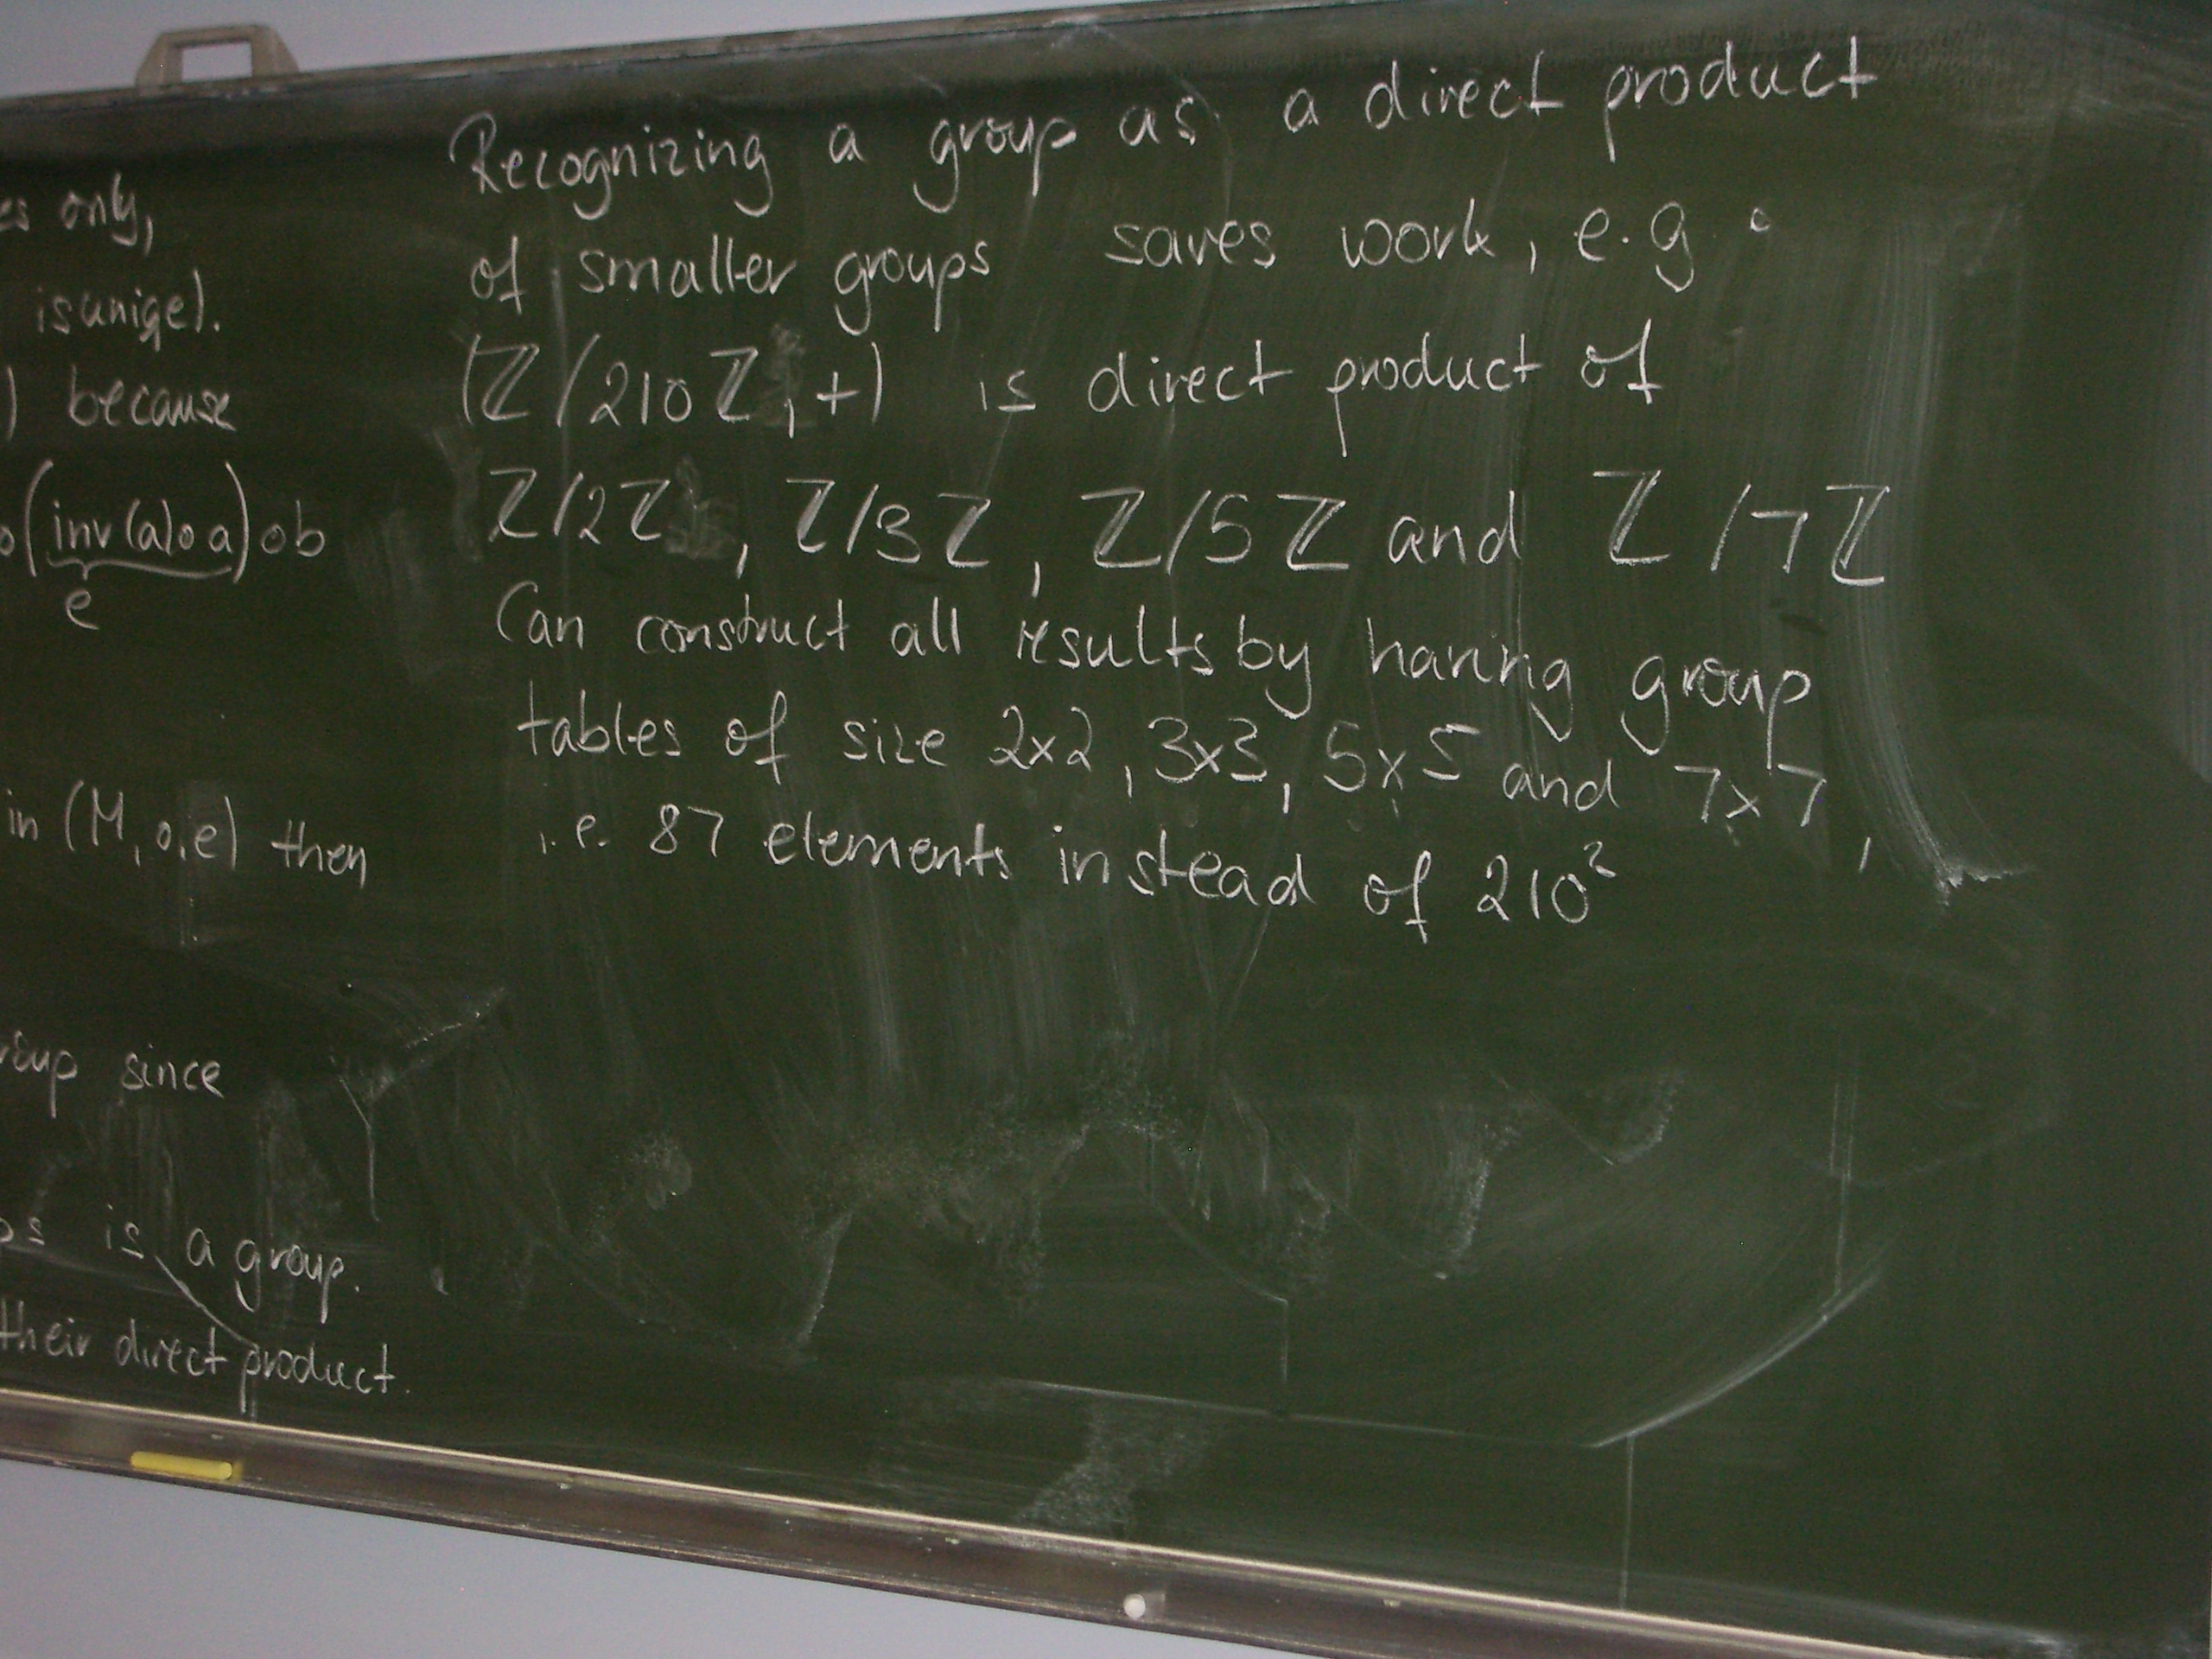 es only,
isunige).
) because
o(inv(a)oa)ob
e
in (M,o,e) then
roup since
ps is a group.
their direct product.
Recognizing a group as a direct product
of smaller groups saves work, e.g.
(ℤ/210ℤ,+) is direct product of
ℤ/2ℤ, ℤ/3ℤ, ℤ/5ℤ and ℤ/7ℤ
Can construct all results by having group
tables of size 2x2, 3x3, 5x5 and 7x7,
i.e. 87 elements instead of 210²